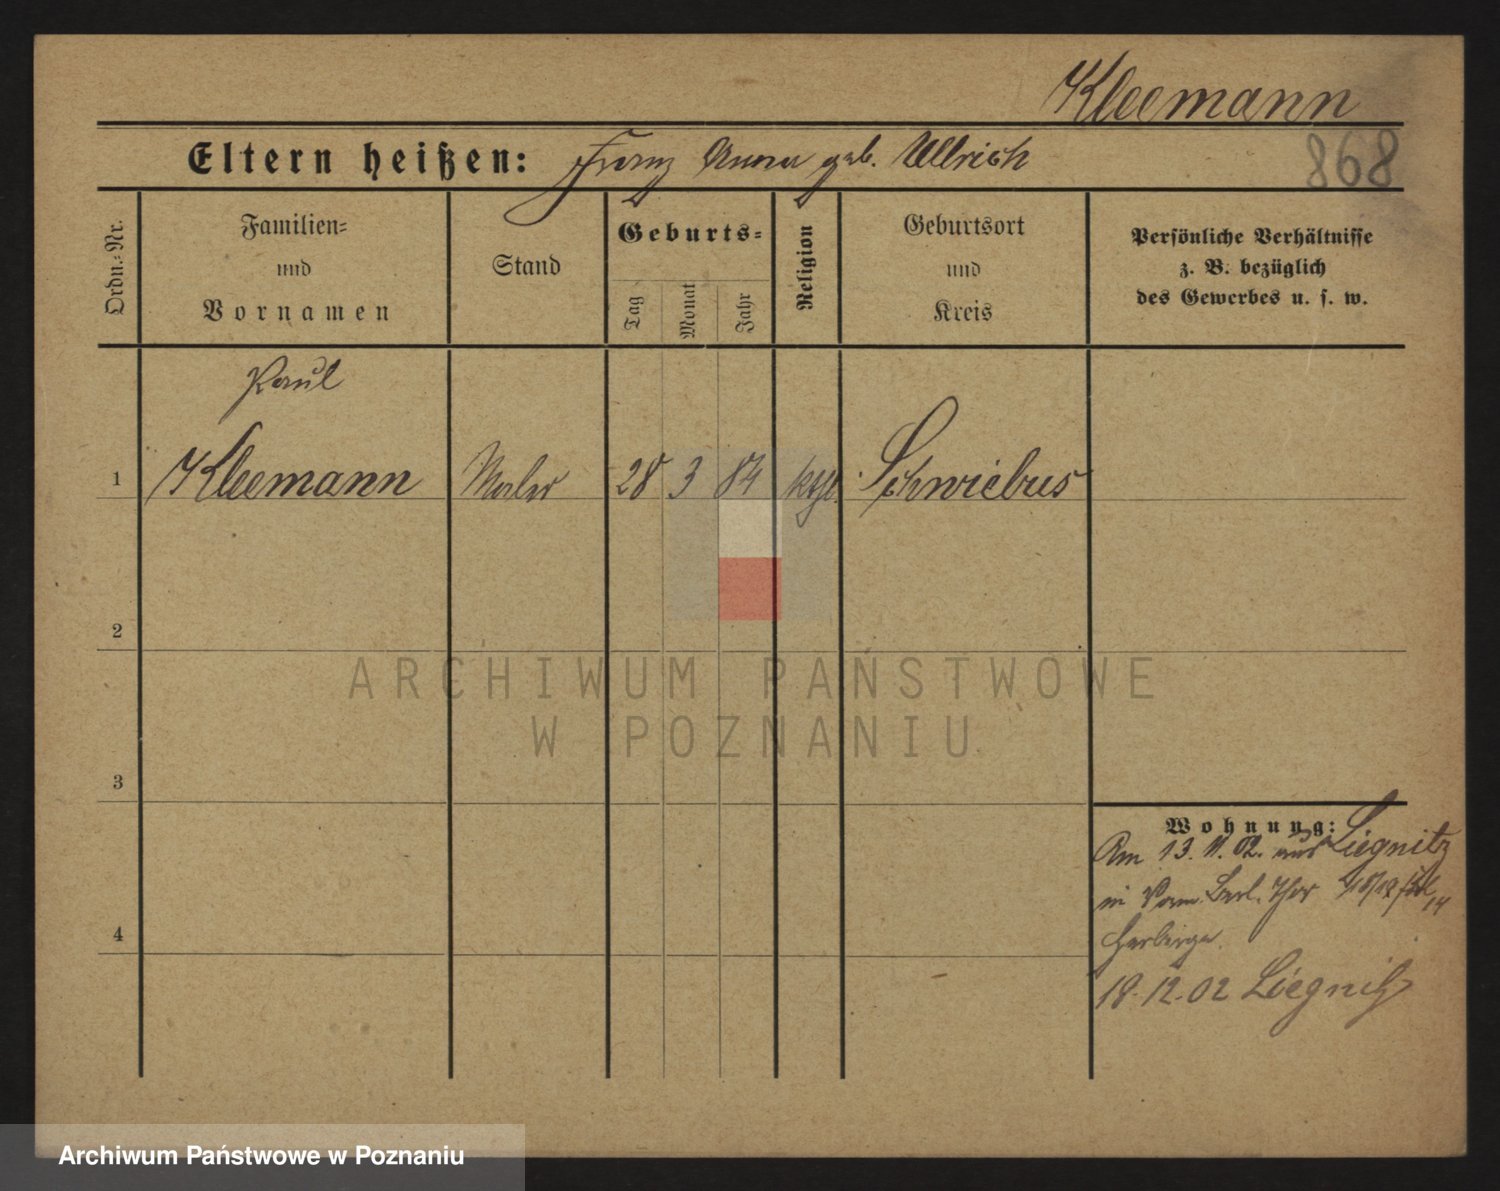 Kleemann
Eltern heißen: Franz Anna geb. Ullrich
868
Ordn.-Nr.
Familien-
und
Vornamen
Stand
Geburts-
Tag
Monat
Jahr
Religion
Geburtsort
und
Kreis
Persönliche Verhältnisse
z. B. bezüglich
des Gewerbes u. s. w.
Paul
1 Kleemann Maler 28 3 84 ktl. Schwiebus
2
3
4
Wohnung:
Am 13. 11. 02. aus Liegnitz
in Berl. Thor
Herberge.
18.12.02 Liegnitz
ARCHIWUM PAŃSTWOWE
W POZNANIU
Archiwum Państwowe w Poznaniu